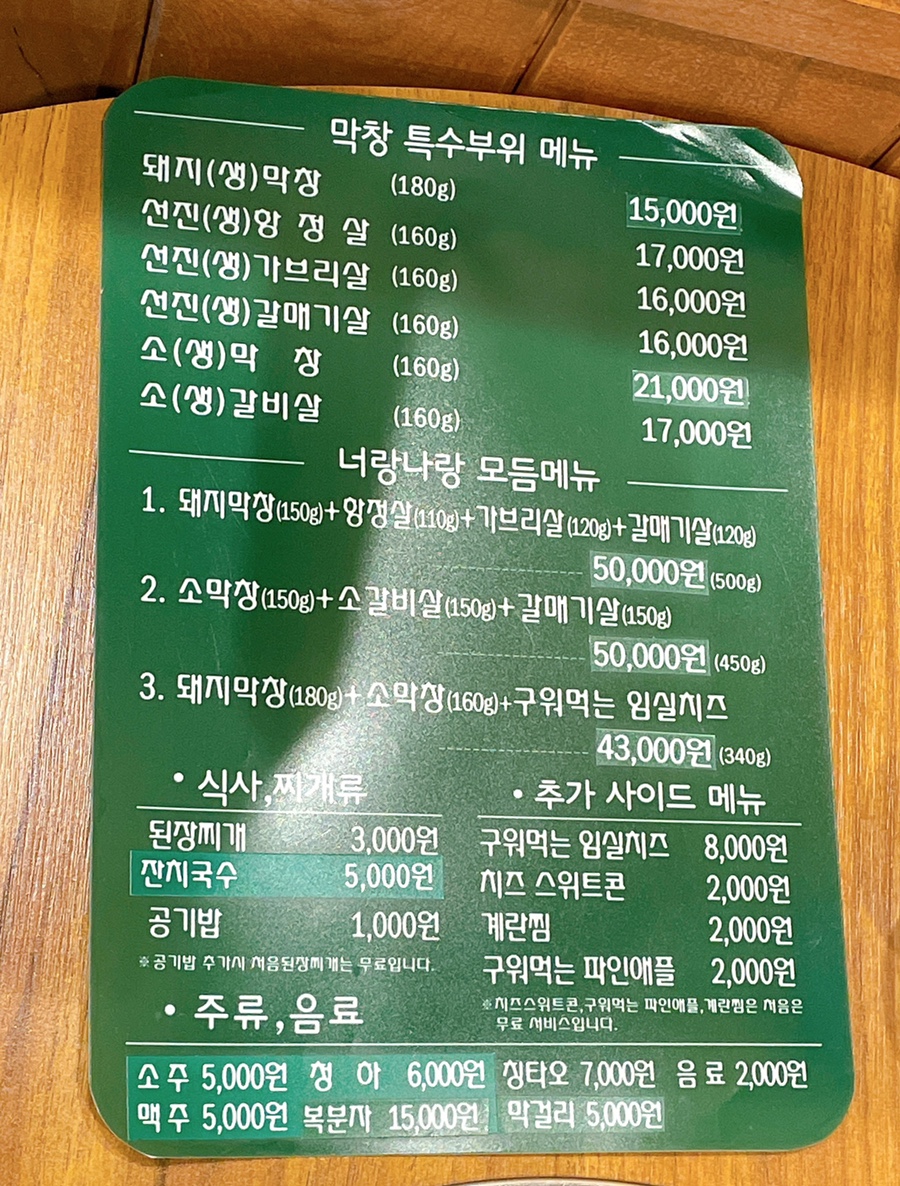 막창 특수부위 메뉴
돼지(생)막창 (180g) 15,000원
선진(생)항 정 살 (160g) 17,000원
선진(생)가브리살 (160g) 16,000원
선진(생)갈매기살 (160g) 16,000원
소(생)막 창 (160g) 21,000원
소(생)갈비살 (160g) 17,000원
너랑나랑 모듬메뉴
1. 돼지막창(150g)+항정살(110g)+가브리살(120g)+갈매기살(120g)
50,000원 (500g)
2. 소막창(150g)+소갈비살(150g)+갈매기살(150g)
50,000원 (450g)
3. 돼지막창(180g)+소막창(160g)+구워먹는 임실치즈
43,000원 (340g)
• 식사,찌개류
된장찌개 3,000원
잔치국수 5,000원
공기밥 1,000원
※공기밥 추가시 처음된장찌개는 무료입니다.
• 추가 사이드 메뉴
구워먹는 임실치즈 8,000원
치즈 스위트콘 2,000원
계란찜 2,000원
구워먹는 파인애플 2,000원
※치즈스위트콘,구워먹는 파인애플,계란찜은 처음은
무료 서비스입니다.
• 주류,음료
소 주 5,000원 청 하 6,000원 칭타오 7,000원 음 료 2,000원
맥 주 5,000원 복분자 15,000원 막걸리 5,000원